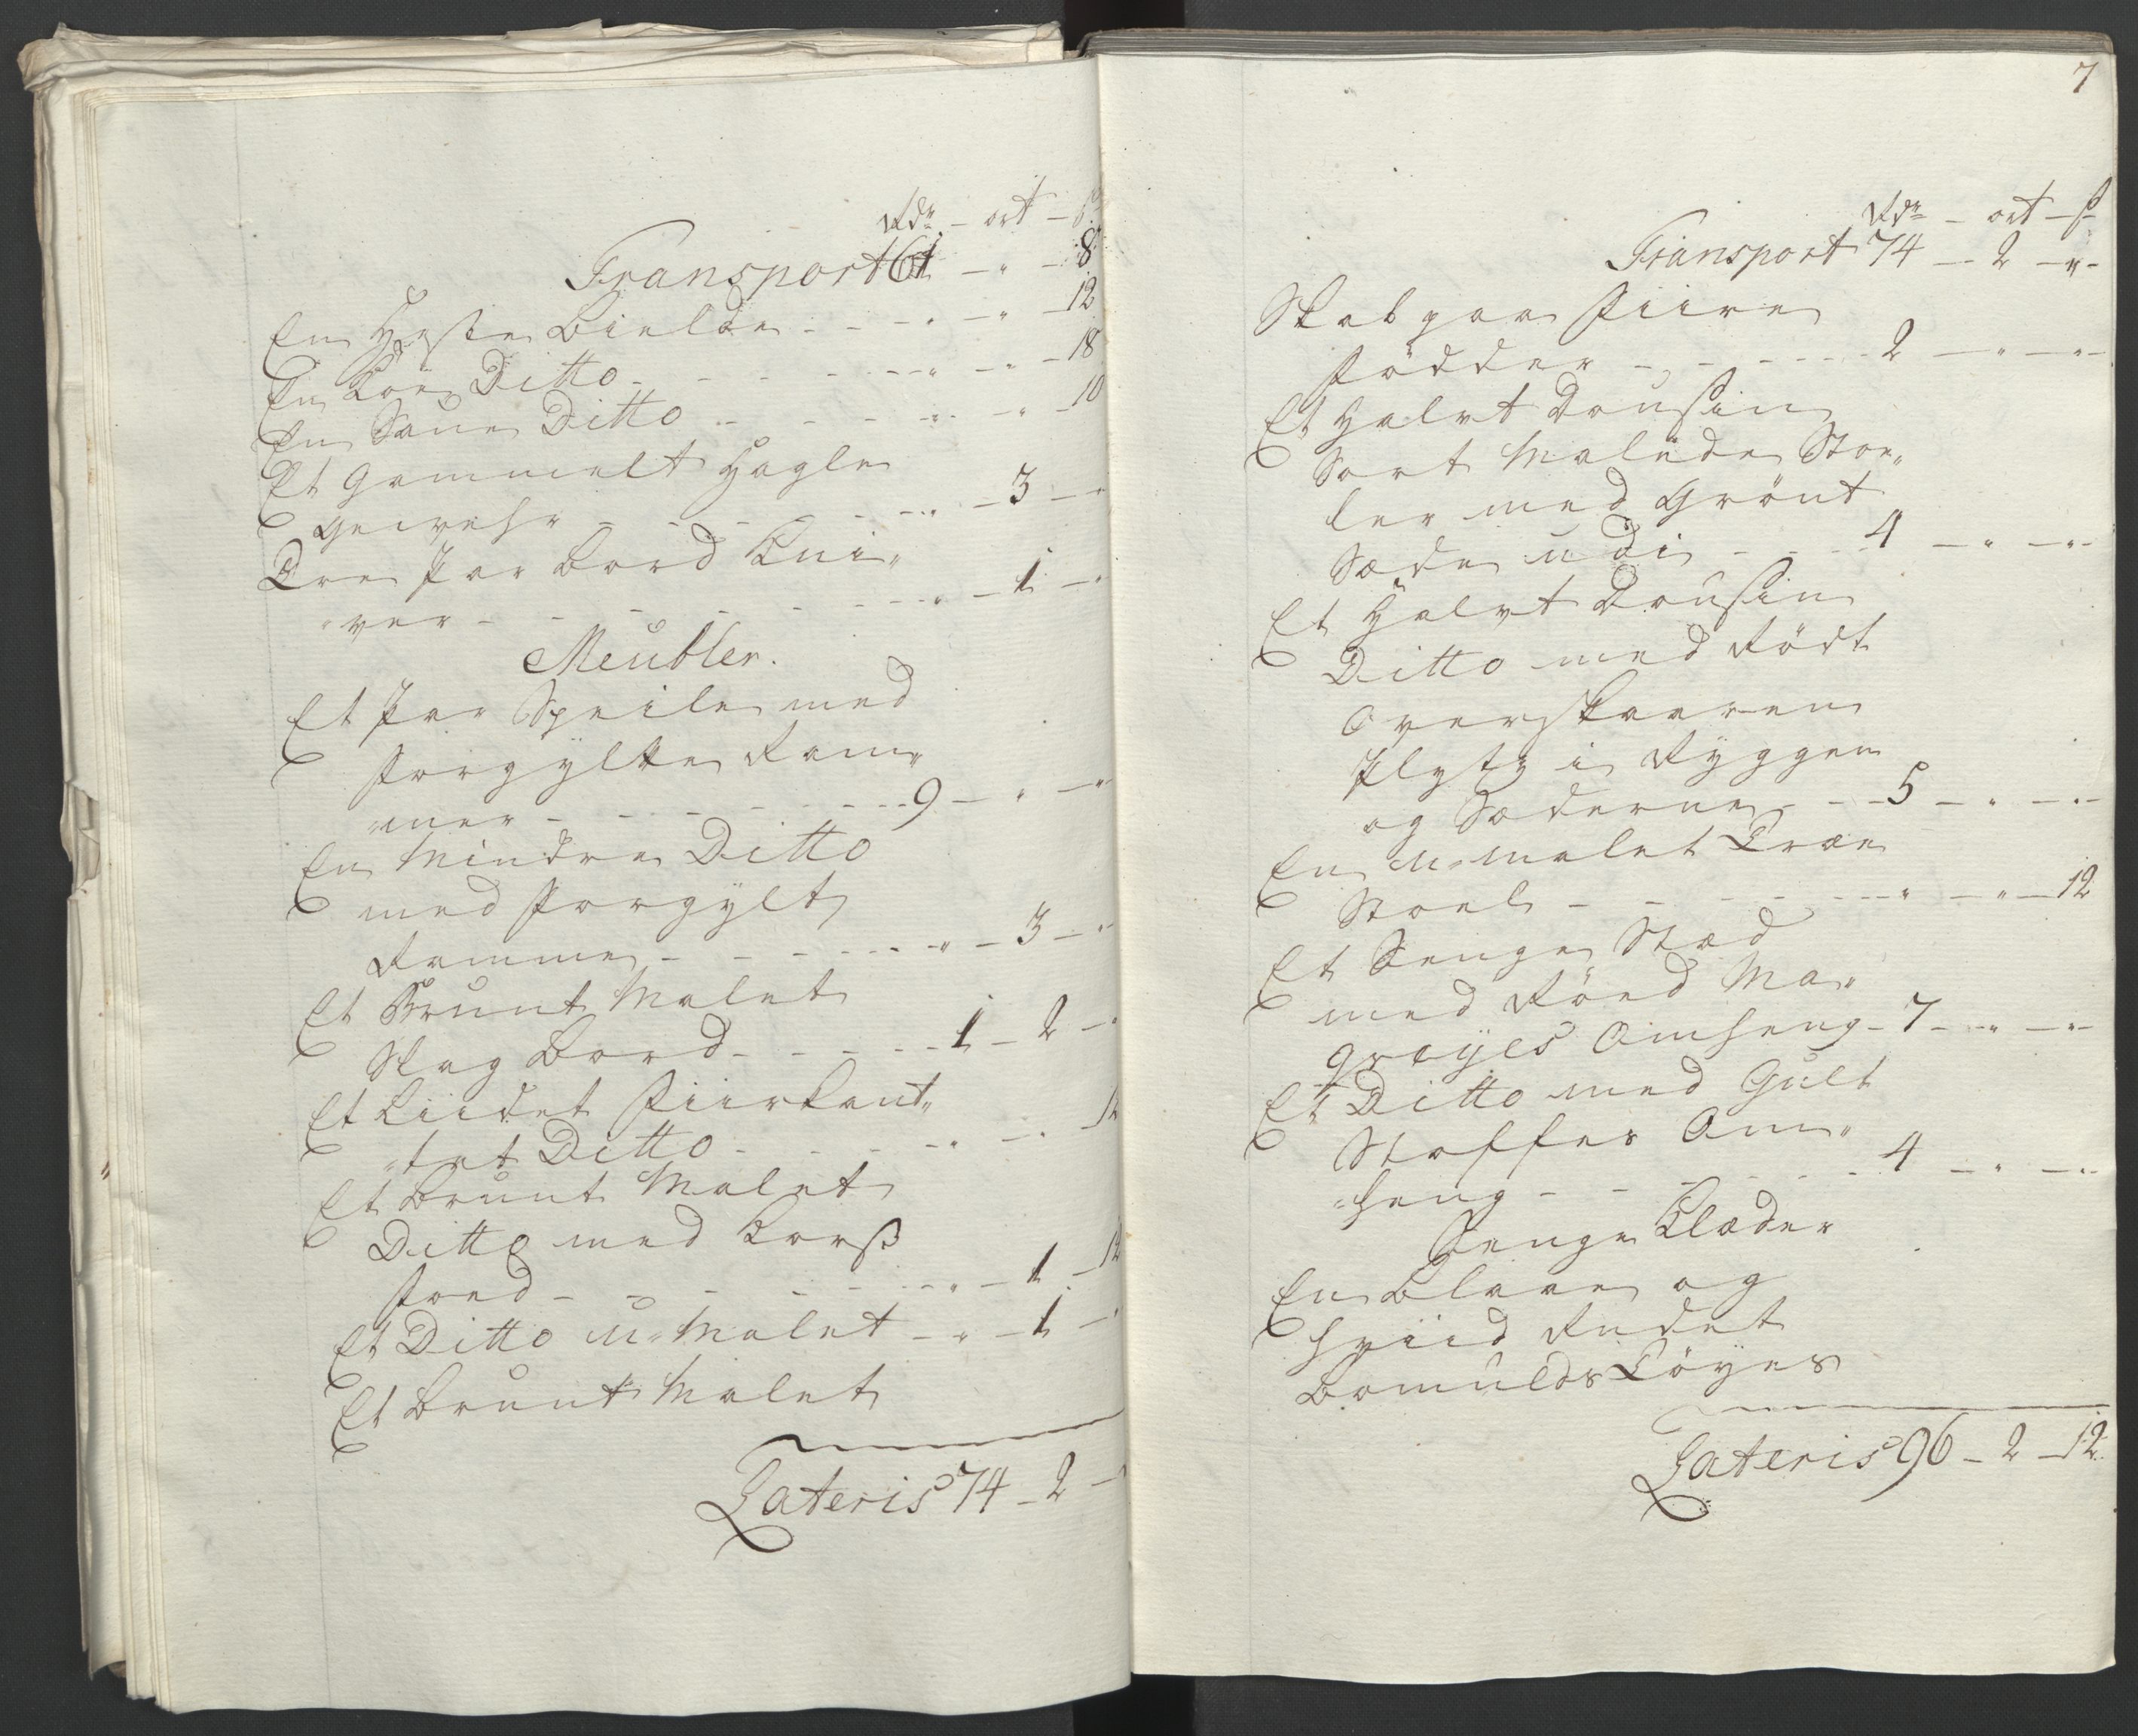 Rdr – ort – ß
Transport 61 – " – 8
En Heste Bielde - - - " – " – 12
En Koe Ditto - - - - " – " – 18
En Saue Ditto - - - - " – " – 10
Et Gammelt Hagle
Gewehr - - - - - " – 3 – "
Tre Par Bord Kni"
"ver - - - - - - " – 1 – "
Meubler.
Et Par Speile med
forgylte Ram"
"mer - - - - - 9 – " – "
En Mindre Ditto
med forgylt
Ramme - - - - - " – 3 – "
Et Brunt Malet
Slag Bord - - - - - 1 – 2 – "
Et Liidet Fiirkant"
"tet Ditto - - - - " – " – 12
Et Brunt Malet
Ditto med Korß
foed - - - - - - " – 1 – 12
Et Ditto u-Malet – " – 1 – "
Et Brunt Malet
Lateris 74 – 2 – "
7
Rdr – ort – ß
Transport 74 – 2 – "
Skab paa Fiire
födder - - - - - 2 – " – "
Et Halvt Dousin
Sort Malede Stoe"
ler med Grönt
Sæde udi - - - 4 – " – "
Et Halvt Dousin
Ditto med Rödt
Overskaaren
Plyds i Ryggen
og Sæderne - - - 5 – " – "
En u-malet Træe
Stoel - - - - - " – " – 12
Et Senge Stæd
med Röed Ma"
grayes Omheng - 7 – " – "
Et Ditto med Guult
Stoffes Om"
"heng - - - - - 4 – " – "
Senge Klæder
En Blaae og
hviid Rudet
Bomulds Töyes
Lateris 96 – 2 – 12